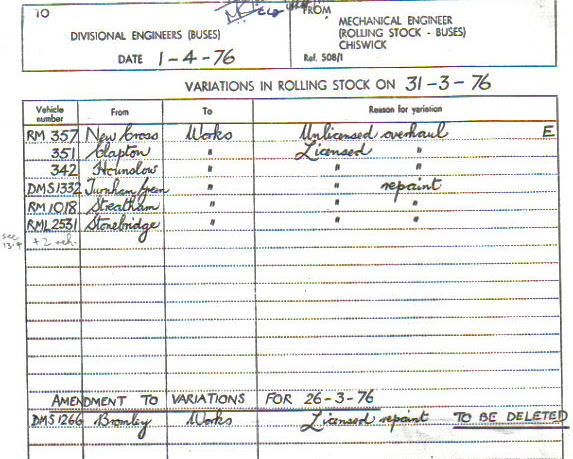 TO
FROM
DIVISIONAL ENGINEERS (BUSES)
MECHANICAL ENGINEER
(ROLLING STOCK - BUSES)
CHISWICK
DATE 1-4-76
Ref. 508/1
VARIATIONS IN ROLLING STOCK ON 31-3-76
Vehicle number From To Reason for variation
RM 357 New Cross Works Unlicensed overhaul E
351 Clapton " Licensed "
342 Hounslow " " "
DMS1332 Turnham Green " " repaint
RM1018 Streatham " " "
RML2531 Stonebridge " " "
see 13.4 +2 veh.
AMENDMENT TO VARIATIONS FOR 26-3-76
DMS1266 Bromley Works Licensed repaint TO BE DELETED